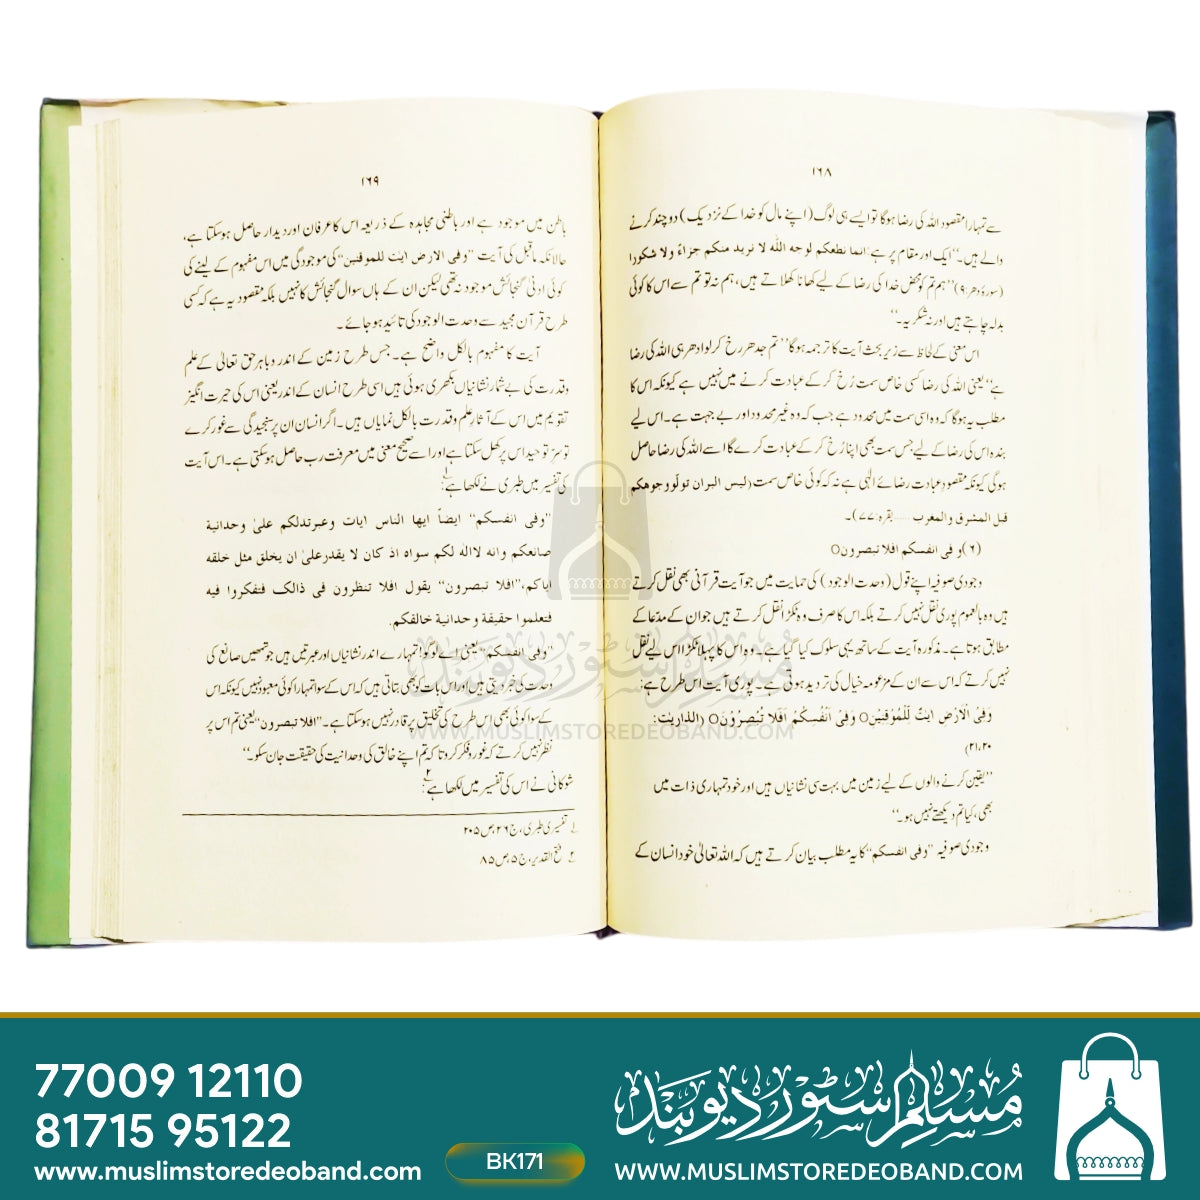 ۱۶۸
سے تمہارا مقصود اللہ کی رضا ہوگا تو ایسے ہی لوگ (اپنے مال کو خدا کے نزدیک) دو چند کرنے
والے ہیں۔“ ایک اور مقام پر ہے: انما نطعمکم لوجہ اللّٰہ لا نرید منکم جزاءً ولا شکورا
(سورۂ دھر:۹) ”ہم تم کو محض خدا کی رضا کے لیے کھانا کھلاتے ہیں، ہم نہ تو تم سے اس کا کوئی
بدلہ چاہتے ہیں اور نہ شکریہ۔“
اس معنی کے لحاظ سے زیر بحث آیت کا ترجمہ ہوگا ”تم جدھر رخ کرلو ادھر ہی اللہ کی رضا
ہے“ یعنی اللہ کی رضا کسی خاص سمت رُخ کرکے عبادت کرنے میں نہیں ہے کیونکہ اس کا
مطلب یہ ہوگا کہ وہ اسی سمت میں محدود ہے جب کہ وہ غیر محدود اور بے جہت ہے۔ اس لیے
بندہ اس کی رضا کے لیے جس سمت بھی اپنا رُخ کرکے عبادت کرے گا اسے اللہ کی رضا حاصل
ہوگی کیونکہ مقصودِ عبادت رضائے الٰہی ہے نہ کہ کوئی خاص سمت (لیس البران تولّوا وجوھکم
قبل المشرق والمغرب ...... بقرہ:۷۷)۔
(۶) و فی انفسکم افلا تبصرون○
وجودی صوفیہ اپنے قول (وحدت الوجود) کی حمایت میں جو آیت قرآنی بھی نقل کرتے
ہیں وہ بالعموم پوری نقل نہیں کرتے بلکہ اس کا صرف وہ ٹکڑا نقل کرتے ہیں جو ان کے مدّعا کے
مطابق ہوتا ہے۔ مذکورہ آیت کے ساتھ یہی سلوک کیا گیا ہے، وہ اس کا پہلا ٹکڑا اس لیے نقل
نہیں کرتے کہ اس سے ان کے مزعومہ خیال کی تردید ہوتی ہے۔ پوری آیت اس طرح ہے:
وَفِی الْاَرْضِ اٰیٰتٌ لِّلْمُوْقِنِیْنَ○ وَفِیْ اَنْفُسِکُمْ اَفَلَا تُبْصِرُوْنَ○ (الذاریٰت:
۲۱،۲۰)
”یقین کرنے والوں کے لیے زمین میں بہت سی نشانیاں ہیں اور خود تمہاری ذات میں
بھی، کیا تم دیکھتے نہیں ہو۔“
وجودی صوفیہ ”وفی انفسکم“ کا یہ مطلب بیان کرتے ہیں کہ اللہ تعالیٰ خود انسان کے
۱۶۹
باطن میں موجود ہے اور باطنی مجاہدہ کے ذریعہ اس کا عرفان اور دیدار حاصل ہوسکتا ہے،
حالانکہ ماقبل کی آیت ”وفی الارض ایٰت للموقنین“ کی موجودگی میں اس مفہوم کے لینے کی
کوئی ادنیٰ گنجائش موجود نہ تھی لیکن ان کے ہاں سوال گنجائش کا نہیں بلکہ مقصود یہ ہے کہ کسی
طرح قرآن مجید سے وحدت الوجود کی تائید ہوجائے۔
آیت کا مفہوم بالکل واضح ہے۔ جس طرح زمین کے اندر و باہر حق تعالیٰ کے علم
وقدرت کی بے شمار نشانیاں بکھری ہوئی ہیں اسی طرح انسان کے اندر یعنی اس کی حیرت انگیز
تقویم میں اس کے آثارِ علم و قدرت بالکل نمایاں ہیں۔ اگر انسان ان پر سنجیدگی سے غور کرے
تو سرِّ توحید اس پر کھل سکتا ہے اور اسے صحیح معنی میں معرفت رب حاصل ہوسکتی ہے۔ اس آیت
کی تفسیر میں طبری نے لکھا ہے۱:
”وفی انفسکم“ ایضاً ایھا الناس ایات وعبرتدلکم علیٰ وحدانیة
صانعکم وانه لااله لکم سواه اذ کان لا یقدرعلیٰ ان یخلق مثل خلقه
ایاکم،”افلا تبصرون“ یقول افلا تنظرون فی ذالک فتفکروا فیه
فتعلموا حقیقة وحدانیة خالقکم.
”وفی انفسکم“ یعنی اے لوگو! تمہارے اندر نشانیاں اور عبرتیں ہیں جو تمھیں صانع کی
وحدت کی خبر دیتی ہیں اور اس بات کو بھی بتاتی ہیں کہ اس کے سوا تمہارا کوئی معبود نہیں کیونکہ اس
کے سوا کوئی بھی اس طرح کی تخلیق پر قادر نہیں ہوسکتا ہے۔ ”افلا تبصرون“ یعنی تم اس پر
نظر نہیں کرتے کہ غور و فکر کرو تا کہ تم اپنے خالق کی وحدانیت کی حقیقت جان سکو۔“
شوکانی نے اس کی تفسیر میں لکھا ہے۲:
۱ تفسیری طبری، ج ۲۶، ص ۲۰۵
۲ فتح القدیر، ج ۵، ص ۸۵
مسلم سٹور دیوبند
WWW.MUSLIMSTOREDEOBAND.COM
77009 12110
81715 95122
www.muslimstoredeoband.com
BK171
مسلم سٹور دیوبند
WWW.MUSLIMSTOREDEOBAND.COM